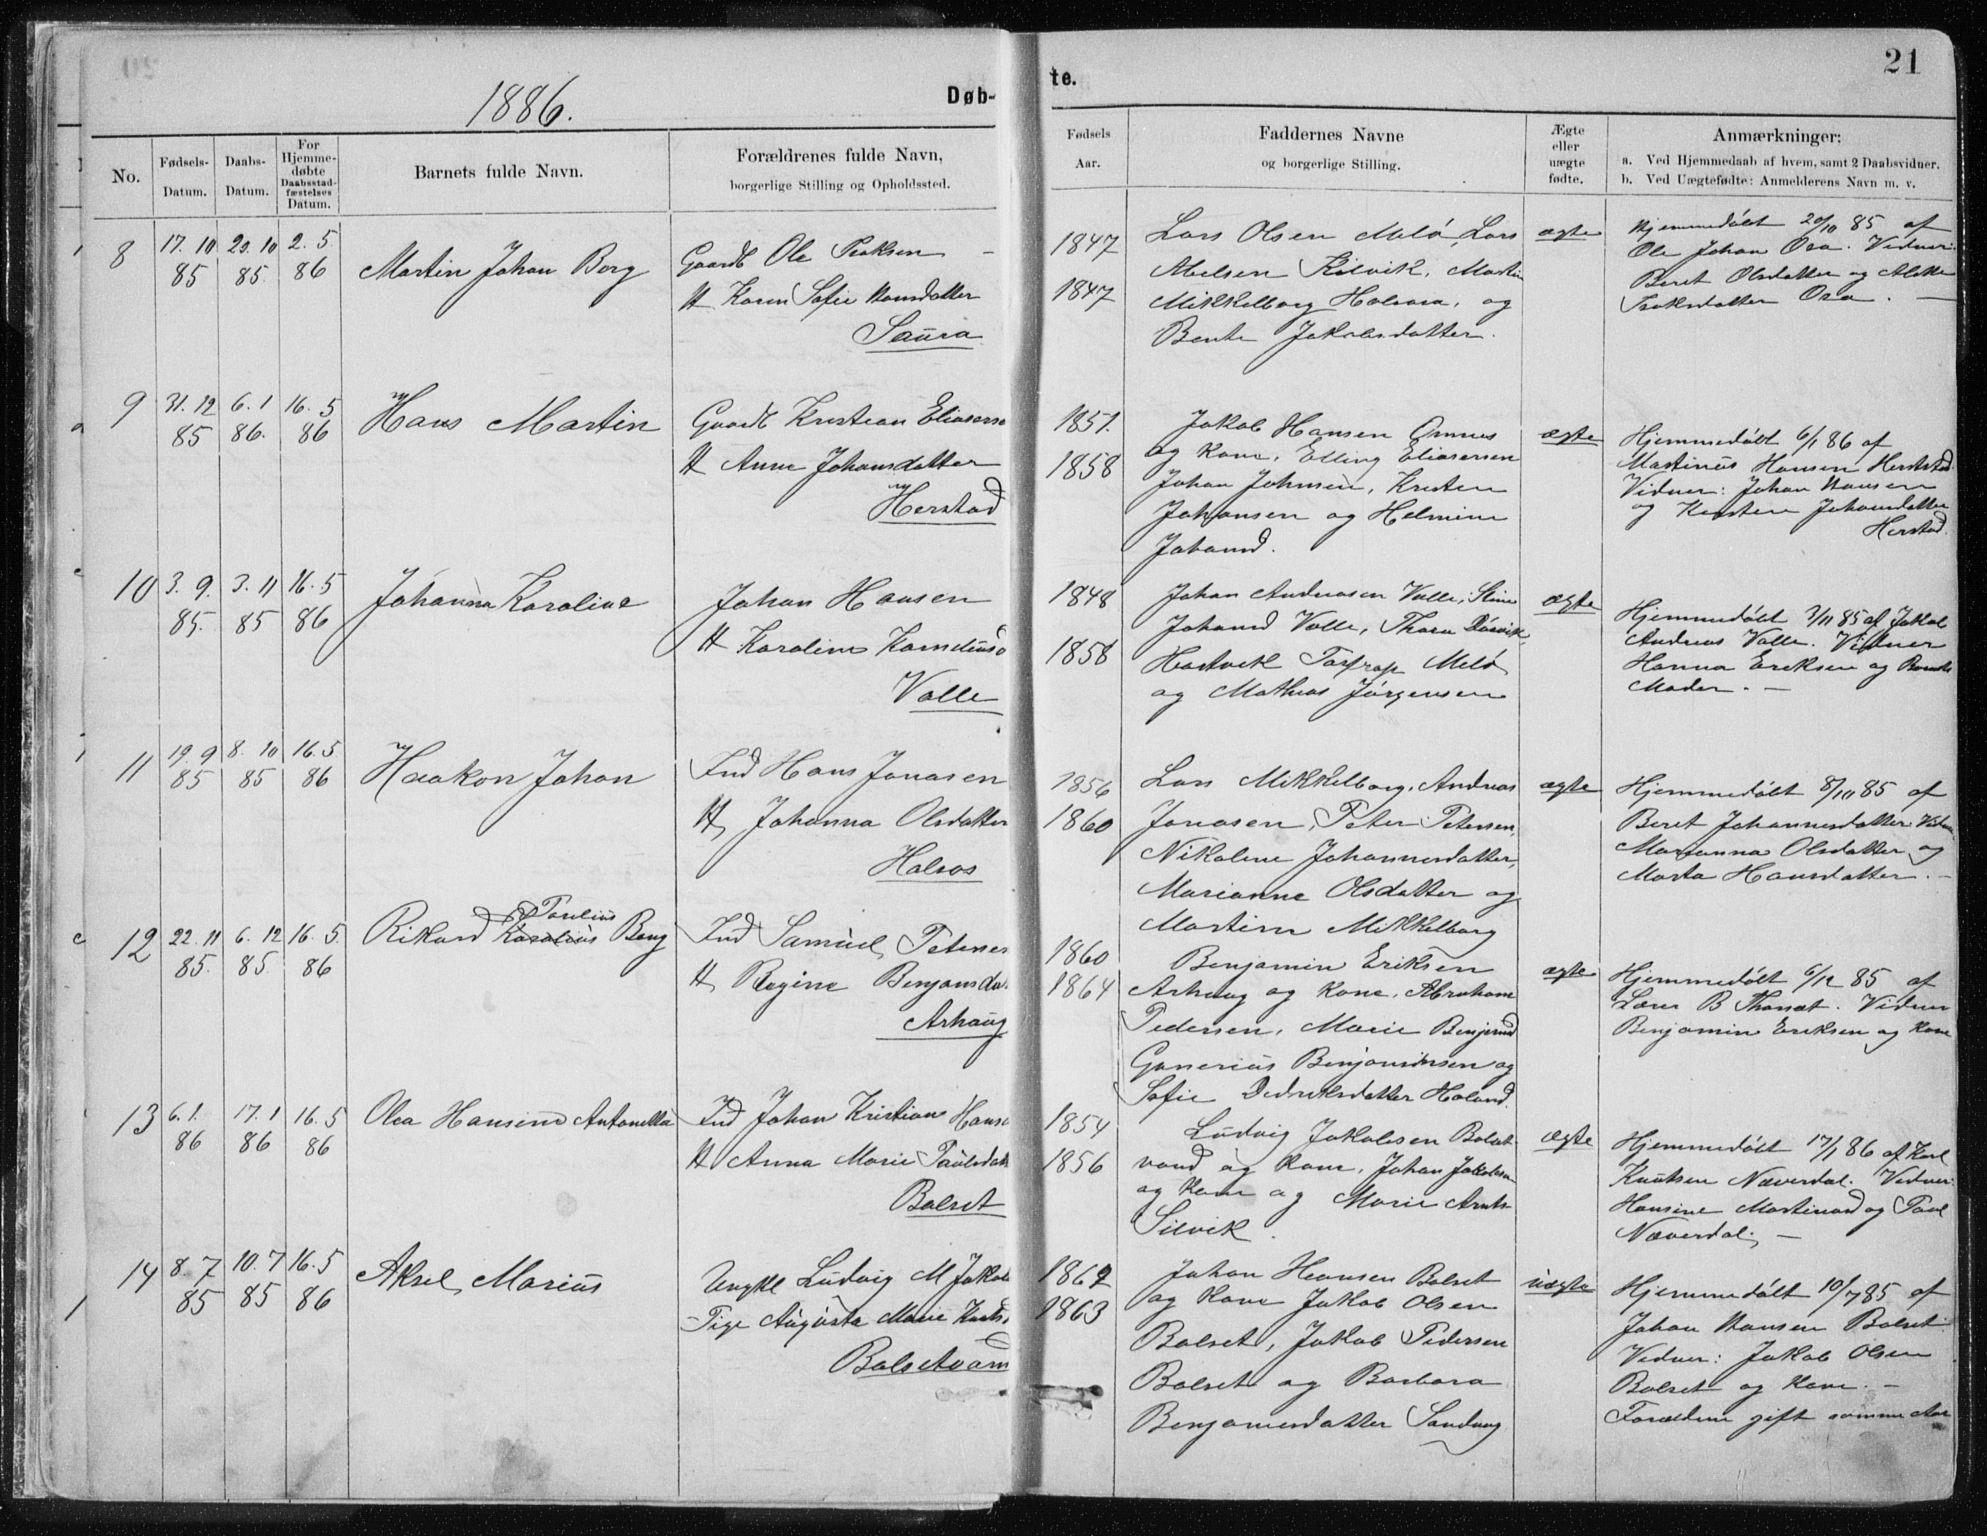 1886.
Døb-
te.
21
No.
Fødsels-
Datum.
Daabs-
Datum.
For
Hjemme-
døbte
Daabsstad-
fæstelses
Datum.
Barnets fulde Navn.
Forældrenes fulde Navn,
borgerlige Stilling og Opholdssted.
Fødsels
Aar.
Faddernes Navne
og borgerlige Stilling.
Ægte
eller
uægte
fødte.
Anmærkninger:
a. Ved Hjemmedaab af hvem, samt 2 Daabsvidner.
b. Ved Uægtefødte: Anmelderens Navn m. v.
8
17. 10
85
20. 10
85.
2. 5
86
Martin Johan Borg
Gaardb Ole
H Karen Sofie Hansdatter
Saura
1847
1847
Lars Olsen Melö, Lars
Kilvik, Martin
Mikkelborg Halsaa, og
Bente Jakobsdatter.
ægte
Hjemmedøbt 20/10 85 af
Ole Johan Osa. Vidner:
Beret Olsdatter og
Isaksdatter Osa. —
9
31. 12
85
6. 1
86.
16. 5
86
Hans Martin
Gaardb Kristian Eliasens
H Anne Johansdatter
Herstad
1851.
1858
Jakob Hansen
og Kone, Elling Eliasersen
Johan Johnsen, Kristen
Johansen og Helmine
Johansd.
ægte
Hjemmedøbt 6/1 86 af
Martinus Hansen Herstad.
Vidner: Johan Hansen
og Johansdatter
Herstad.
10
3. 9.
85.
3. 11
85
16. 5
86
Johanna Karoline
Johan Hansen
H Karoline
Valle
1848
1858
Johan Andreasen Valle, Stine
Johansd Valle, Thora
Hartvik Melö
og Mathias Jörgensen
ægte
Hjemmedøbt 3/11 85 af Jakob
Andreas Valle. Vidner
Hanna Eriksen og
Moder. —
11
19. 9
85
8. 10
85
16. 5
86
Haakon Johan
Ind Hans Jonasen
H, Johanna Olsdatter
Halsos
1856
1860
Lars Mikkelborg, Andreas
Jonasen, Peter Petersen,
Nikoline Johannesdatter,
Marianne Olsdatter og
Martin Mikkelborg
ægte
Hjemmedøbt 8/10 85 af
Beret Johannesdatter.
Marianna Olsdatter og
Marta Hansdatter. —
12
22. 11
85.
6. 12
85.
16. 5.
86
Paulius
Rikard Karolius Benj
Ind Samuel,
H, Regine Benjamsda
Arhaug
1860
1864
Benjamin Eriksen
Arhaug og Kone, Abraham
Pedersen, Marie Benjamsd
Gunerius Benjaminsen og
Sofie Didriksdatter Holand.
ægte
Hjemmedøbt 6/12 85 af
Lærer B Vidner
Benjamin Eriksen og Kone
13
6. 1.
86
17. 1
86
16. 5
86
Olea Hansine Antonetta
Ind Johan Kristian Hans
H Anna Marie Paulsdatt
Bolset
1854
1856
Ludvig Jakobsen Bolset-
vand og Kone, Johan Jakobsen
og Kone og Marie
Silvik.
ægte
Hjemmedøbt 17/1 86 af Karl
Knutsen Næverdal. Vidner:
Hansine og Paul
Næverdal. —
14
8. 7
85
10. 7
85
16. 5
86
Aksel, Marius
Ungkl Ludvig M Jakob
Pige Augusta Marie
Bolsetvam
1862
1863
Johan Hansen Bolset
og Kone Jakob Olsen
Bolset, Jakob Pedersen
Bolset og Barbara
Benjaminsdatter Sandvag
uægte
Hjemmedøbt 10/7 85 af
Johan Hansen Bolset.
Vidner: Jakob Olsen
Bolset og Kone. —
Forældrene gift samme Aar